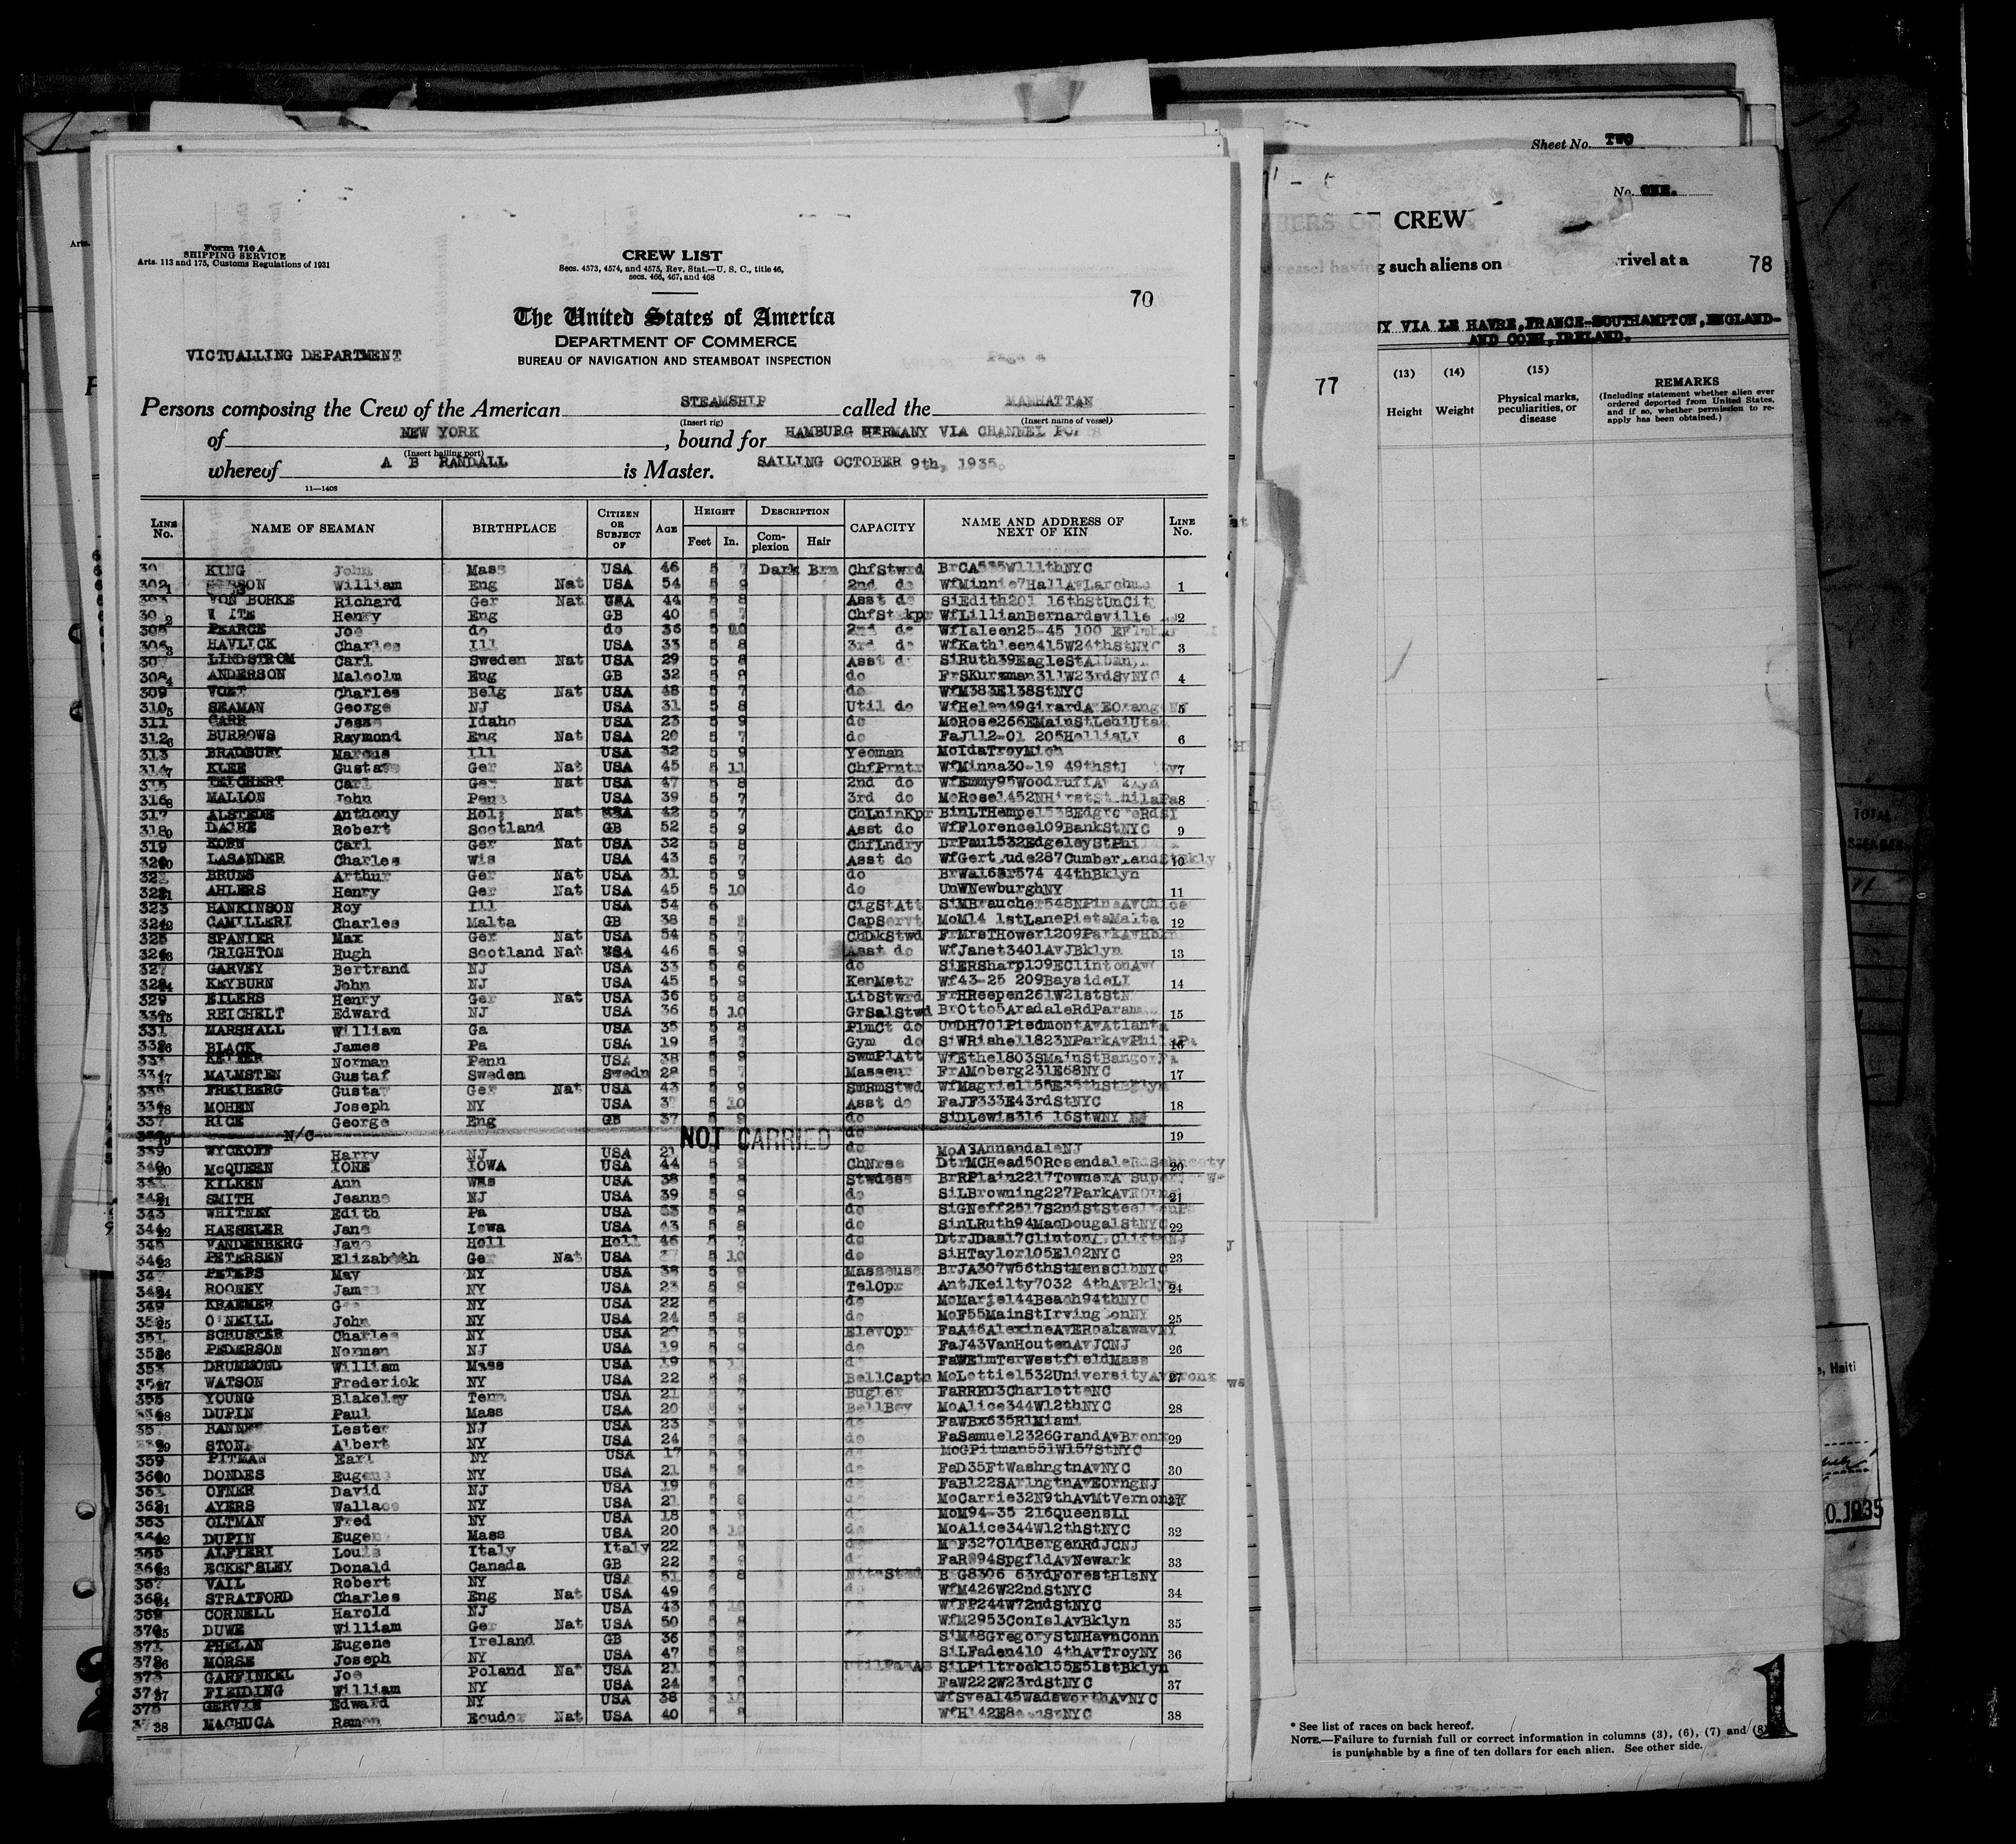 Form 710 A
SHIPPING SERVICE
Arts. 113 and 175, Customs Regulations of 1931
CREW LIST
Secs. 4573, 4574, and 4575, Rev. Stat.—U. S. C., title 46,
secs. 465, 467, and 468
70
The United States of America
DEPARTMENT OF COMMERCE
BUREAU OF NAVIGATION AND STEAMBOAT INSPECTION
VICTUALLING DEPARTMENT
Page 4
Persons composing the Crew of the American STEAMSHIP called the MANHATTAN
(Insert rig) (Insert name of vessel)
of NEW YORK, bound for HAMBURG GERMANY VIA CHANNEL
(Insert hailing port)
whereof A B RANDALL is Master. SAILING OCTOBER 9th, 1935.
11—1408
LINE No. NAME OF SEAMAN BIRTHPLACE CITIZEN OR SUBJECT OF AGE HEIGHT Feet In. DESCRIPTION Complexion Hair CAPACITY NAME AND ADDRESS OF NEXT OF KIN LINE No.
KING John Mass USA 46 5 7 Dark Brn ChfStwrd BrCA535W111thNYC
302 William Eng Nat USA 54 5 9 2nd do 1
303 VON BORKE Richard Ger Nat USA 44 5 8 Asst do SiEdith201 16thStUnCit
Henry Eng GB 40 5 7 WfLillianBernardsville 2
305 PEARCE Joe do do 36 5 10 2nd do
306 HAVLICK Charles Ill USA 33 5 8 3rd do WfKathleen415W24thStNYC 3
307 LINDSTROM Carl Sweden Nat USA 29 5 8 Asst do SiRuth39EagleStAlbany
308 ANDERSON Malcolm Eng GB 32 5 9 do FrSKurzman311W23rdSvNYC 4
309 VOET Charles Belg Nat USA 48 5 7 do WfM383E138StNYC
310 SEAMAN George NJ USA 31 5 8 Util do 5
311 CARR Jesse Idaho USA 23 5 9 do MoRose266EMainStLehiUtah
312 BURROWS Raymond Eng Nat USA 20 5 7 do FaJ112-01 205HollisLI 6
313 BRADBURY Marcus Ill USA 32 5 9 Yeoman MoIdaTroyMich
314 KLEE Gustave Ger Nat USA 45 5 11 ChfPrntr WfMinna30-19 49thSt 7
315 TEICHERT Carl Ger Nat USA 47 5 8 2nd do
316 MALLON John Penn USA 39 5 7 3rd do 8
317 ALSTEDE Anthony Holl Nat USA 42 5 7 ChLninKpr
318 Robert Scotland GB 52 5 9 Asst do WfFlorence109BankStNYC 9
319 KORN Carl Ger Nat USA 32 5 8 ChfLndry BrPaul532EdgeleyStPhil
320 LASANDER Charles Wis USA 43 5 7 Asst do 10
321 BRUNS Arthur Ger Nat USA 31 5 9 do
322 AHLERS Henry Ger Nat USA 45 5 10 do UnWNewburghNY 11
323 HANKINSON Roy Ill USA 54 6 CigStAtt
324 CAMILLERI Charles Malta GB 38 5 CapServt MoM14 1stLanePietaMalta 12
325 SPANIER Max Ger Nat USA 54 5 7 ChDkStwd
326 CRIGHTON Hugh Scotland Nat USA 46 5 9 Asst do WfJanet3401AvJBklyn 13
327 GARVEY Bertrand NJ USA 33 5 6 do
328 KEYBURN John NJ USA 45 5 9 KenMstr Wf43-25 209BaysideLI 14
329 EILERS Henry Ger Nat USA 36 5 8 LibStwrd FrHReepen261W21stStN
330 REICHELT Edward NJ USA 36 5 10 GrSalStwd 15
331 MARSHALL William Ga USA 35 5 8 PlmCt do UnDH701PiedmontAvAtlanta
332 BLACK James Pa USA 19 5 7 Gym do 16
333 Norman Penn USA 38 5 9 SwmPlAtt WfEthel803SMainStBangorPa
334 MALMSTEN Gustaf Sweden Swedn 28 5 7 Masseur FrAMoberg231E68NYC 17
335 FREIBERG Gustav Ger Nat USA 43 5 9 SmRmStwd
336 MOHEN Joseph NY USA 37 5 10 Asst do FaJF333E43rdStNYC 18
337 RICE George Eng GB 37 5 9 do SiDLewis316 16StWNY
N/C NOT CARRIED do 19
339 WYCKOFF Harry NJ USA 21 5 do MoA3AnnandaleNJ
340 McQUEEN IONE IOWA USA 44 5 ChNrse 20
341 KILKEN Ann Wis USA 38 5 8 Stwdess
342 SMITH Jeanne NJ USA 39 5 9 do 21
343 WHITNEY Edith Pa USA 5 8 do
344 HAESELER Jane Iowa USA 43 5 8 do SinLRuth94MacDougalStNYC 22
345 VANDENBERG Jane Holl Holl 46 5 7 do
346 PETERSEN Elizabeth Ger Nat USA 5 10 do SiHTaylor105E102NYC 23
347 PETERS May NY USA 38 5 9 Masseuse BrJA307W56thStMensClbNYC
348 ROONEY James NY USA 23 5 9 TelOpr AntJKeilty7032 4thAvBklyn 24
349 KRAEMER NY USA 22 6 do MoMarie144Beach94thNYC
350 O'NEILL John NY USA 24 5 8 do MoF55MainStIrvingtonNY 25
351 SCHUSTER Charles NY USA 5 9 ElevOpr FaA46AlexineAvERoakawayNY
352 PEDERSON Norman NJ USA 19 5 9 do FaJ43VanHoutenAvJCNJ 26
353 DRUMMOND William Mass USA 19 5 11 do FaWElmTerWestfieldMass
354 WATSON Frederick NY USA 22 5 8 BellCaptn MoLottie1532UniversityAvBronx 27
355 YOUNG Blakeley Tenn USA 21 5 7 Bugler FaRRED3CharlotteNC
356 DUPIN Paul Mass USA 20 5 BellBoy MoAlice344W12thNYC 28
357 Lester NJ USA 23 5 do FaWBx635R1Miami
STONE Albert NY USA 24 5 8 do FaSamuel2326GrandAvBronx 29
359 PITMAN Earl NY USA 17 5 9 do MoGPitman551W157StNYC
360 DONDES Eugene NY USA 21 5 do FaD35FtWashngtnAvNYC 30
361 OFNER David NJ USA 19 6 do FaB122SArlngtnAvEOrngNJ
362 AYERS Wallace NY USA 21 5 8 do MoCarrie32N9thAvMtVernonNY 31
363 OLTMAN Fred NY USA 18 5 9 do MoM94-35 216QueensLI
364 DUPIN Eugene Mass USA 20 5 10 do MoAlice344W12thStNYC 32
365 ALFIERI Louis Italy Italy 22 5 do MoF327OldBergenRdJCNJ
366 ECKERSLEY Donald Canada GB 22 5 do FaR894SpgfldAvNewark 33
367 VAIL Robert NY USA 51 5 8 NiteStwd 63rdForestHlsNY
368 STRATFORD Charles Eng Nat USA 49 6 do WfM426W22ndStNYC 34
369 CORNELL Harold NJ USA 43 5 10 WfFP244W72ndStNYC
370 DUWE William Ger Nat USA 50 5 8 WfM2953ConIslAvBklyn 35
371 PHELAN Eugene Ireland GB 36 5 SiM48GregoryStNHavnConn
372 MORSE Joseph NY USA 47 5 8 SiLFaden410 4thAvTroyNY 36
373 GARFINKEL Joe Poland Nat USA 21 5 SiLPiltrock155E51stBklyn
374 FIELDING William NY USA 24 5 FaW222W23rdStNYC 37
375 GERVIN Edward NY USA 38 5 10 WfSvea145WadsworthAvNYC
MACHUCA Ramon Ecudor Nat USA 40 5 8 38
Sheet No. TWO
No. ONE.
CREW
such aliens on
arrival at a
78
VIA LE HAVRE, FRANCE-SOUTHAMPTON, ENGLAND-
AND COBH, IRELAND.
77
(13) Height
(14) Weight
(15) Physical marks, peculiarities, or disease
REMARKS
(Including statement whether alien ever ordered deported from United States, and if so, whether permission to reapply has been obtained.)
* See list of races on back hereof.
NOTE.—Failure to furnish full or correct information in columns (3), (6), (7) and (8)
is punishable by a fine of ten dollars for each alien. See other side.
1
TOTAL
Haiti
1935